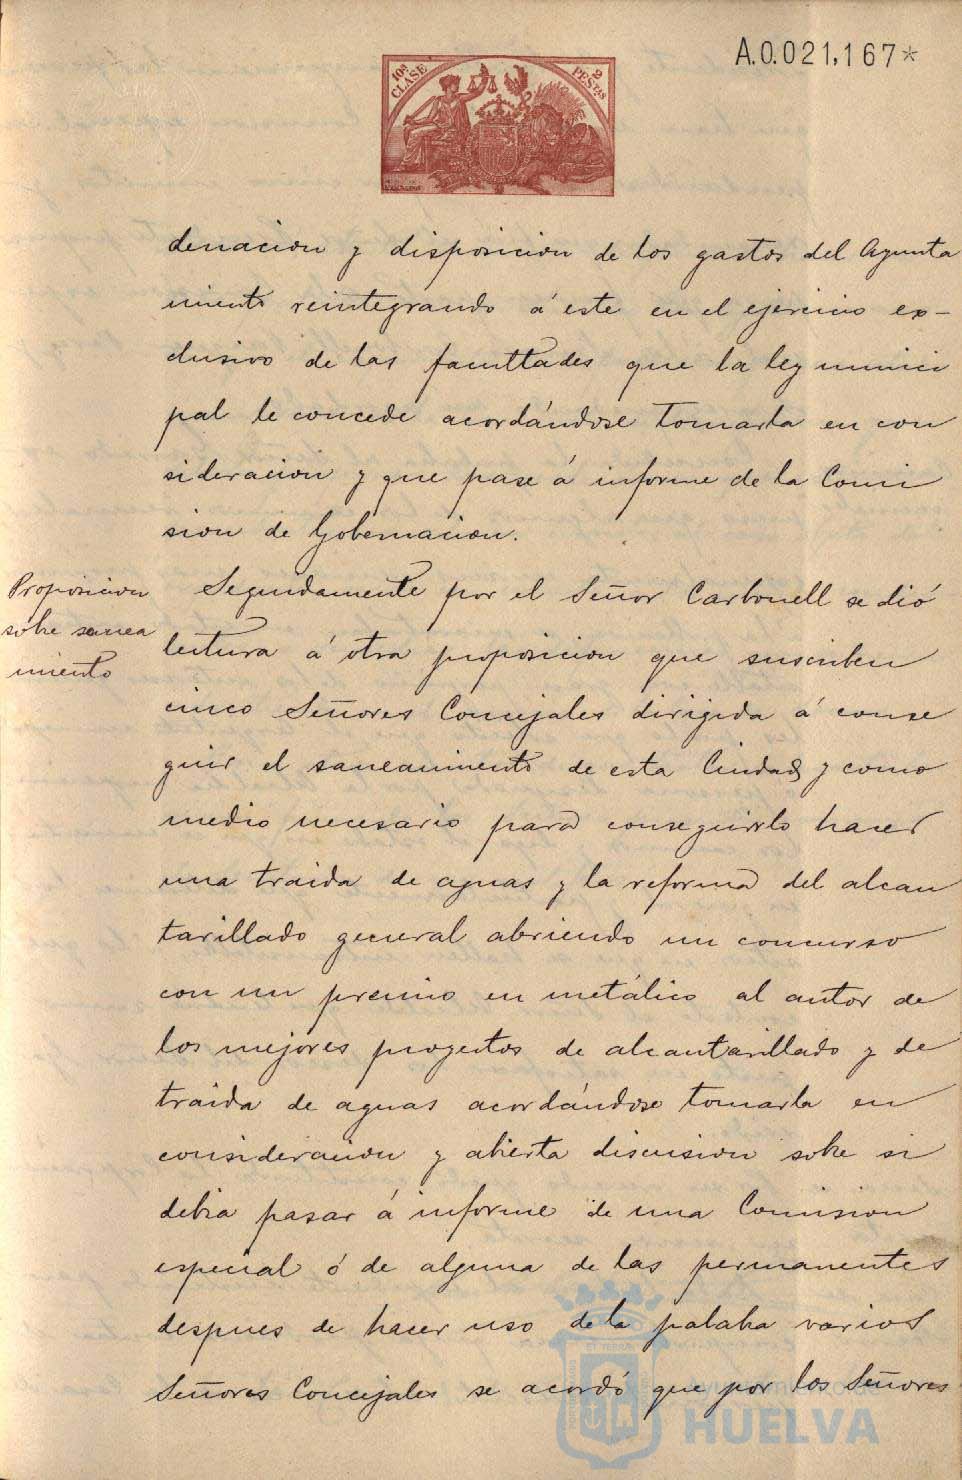 A.0.021,167*
10ª CLASE
2 PESTAS
denacion y disposicion de los gastos del Ayunta
miento reintegrando á este en el ejercicio ex-
clusivo de las facultades que la ley munici
pal le concede acordándose tomarla en con
sideracion y que pase á informe de la Comi
sion de Gobernacion.
Proposicion
sobre sanea
miento
Seguidamente por el Señor Carbonell se dió
lectura á otra proposicion que suscriben
cinco Señores Concejales dirigida á conse
guir el saneamiento de esta Ciudad y como
medio necesario para conseguirlo hacer
una traida de aguas y la reforma del alcan
tarillado general abriendo un concurso
con un premio en metálico al autor de
los mejores proyectos de alcantarillado y de
traida de aguas acordándose tomarla en
consideracion y abierta discusion sobre si
debia pasar á informe de una Comision
especial ó de alguna de las permanentes
despues de hacer uso de la palabra varios
Señores Concejales se acordó que por los Señores
Ayuntamiento de
HUELVA